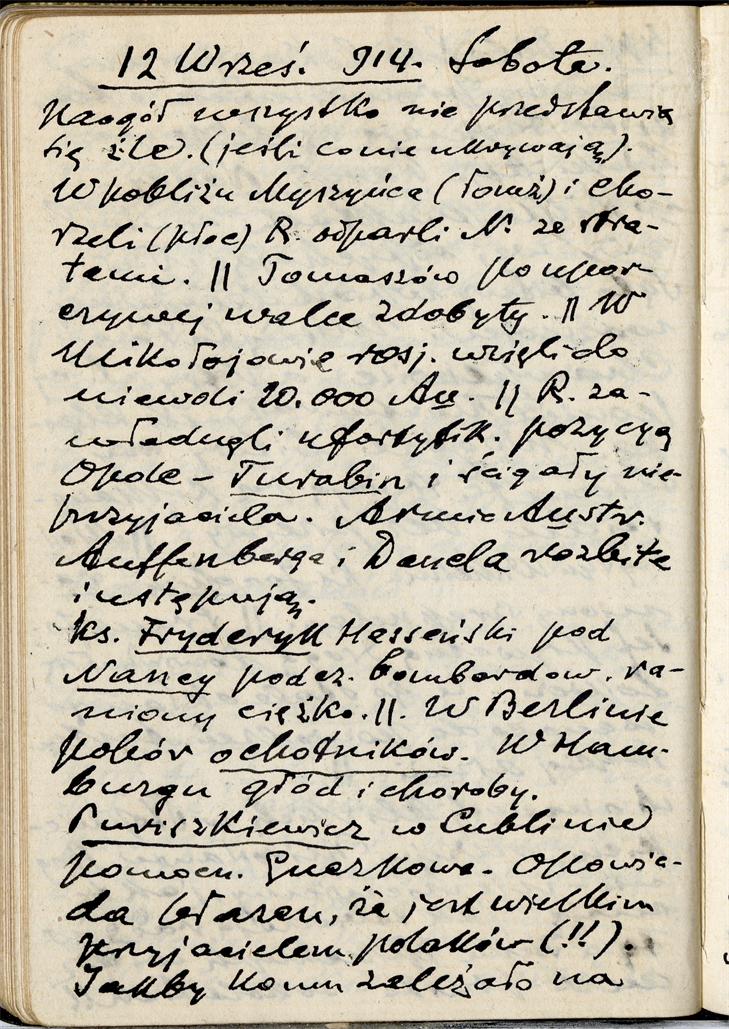 12 Wrześ. 914. Sobota.
Naogół wszystko nie przedstawia
się źle. (jeśli co nie ukrywają).
W pobliżu Myszyńca (Łomż) i Cho-
rzeli (płoc) R. odparli N. ze stra-
tami. || Tomaszów po upor-
czywej walce zdobyty. || W
Mikołajowie rosj. wzięli do
niewoli 20.000 Au. || R. za-
władnęli ufortyfik. pozycyą
Opole – Turabin i ścigały nie-
przyjaciela. Armie Austr.
Auffenberga i Dancla rozbite
i ustępują.
Ks. Fryderyk Hesseński pod
Nancy podcz. bombardow. ra-
niony ciężko. ||. W Berlinie
pobór ochotników. W Ham-
burgu głód i choroby.
Puriszkiewicz w Lublinie
pomocn. Guczkowa. Opowia-
da, że jest wielkim
przyjacielem polaków (!!).
Jakby komu zależało na